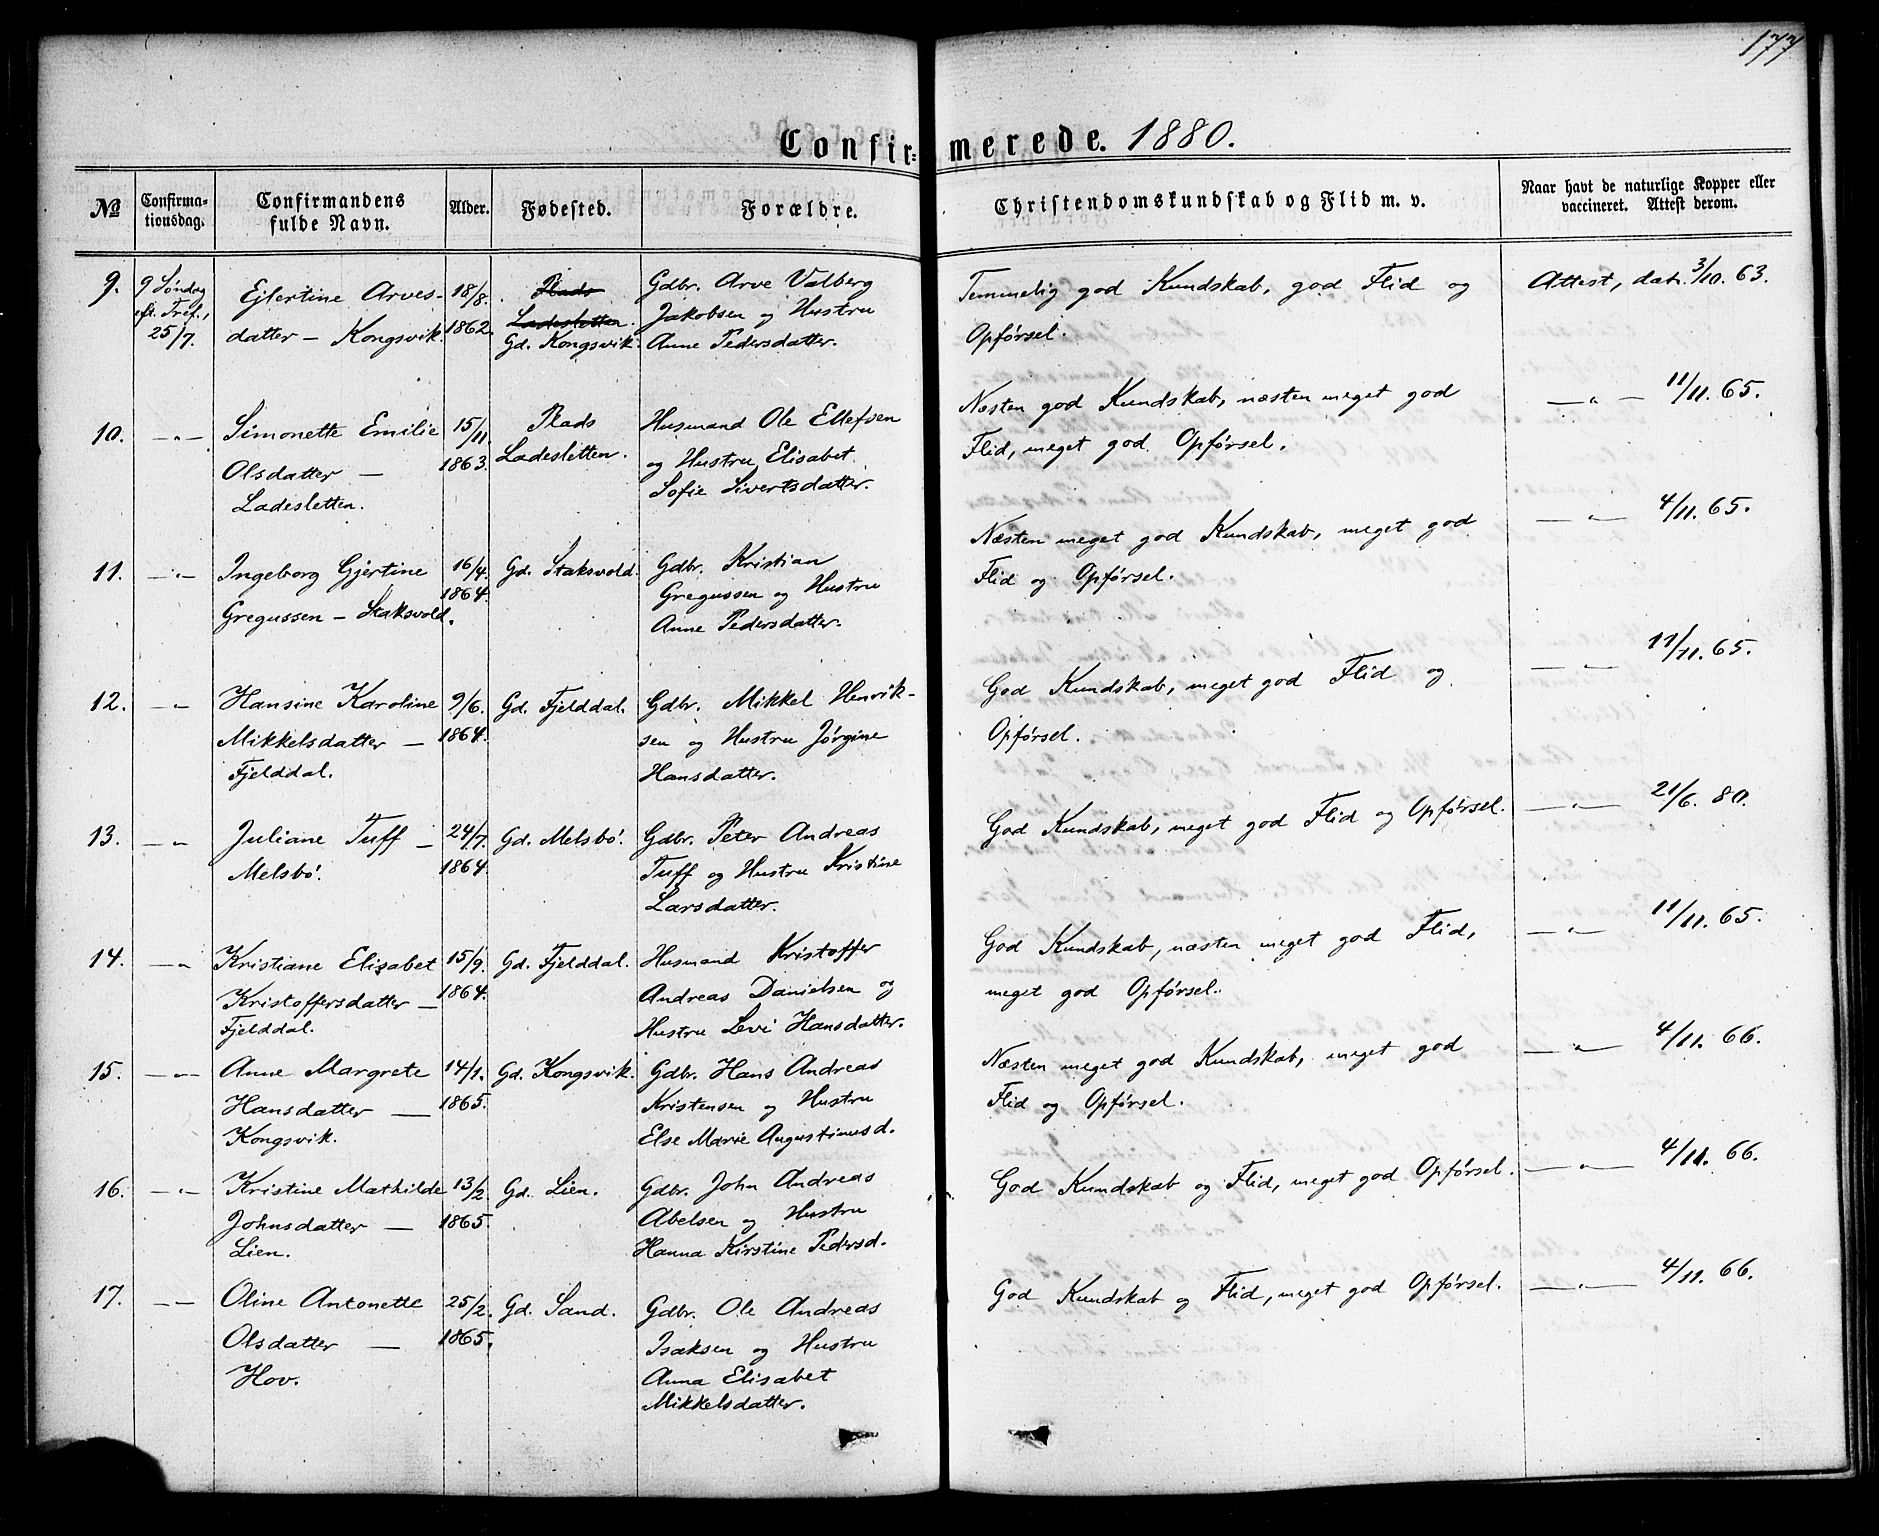 177
Confirmerede. 1880.
№ Confirmationsdag. Confirmandens fulde Navn. Alder. Fødested. Forældre. Christendomskundskab og Flid m. v. Naar havt de naturlige Kopper eller vaccineret. Attest derom.
9. 9 Søndag Ejlertine Arves- 18/8. Plads Gdbr. Arve Valberg Temmelig god Kundskab, god Flid og Attest, dat. 3/10. 63.
eft. Tref., datter – Kongsvik. 1862. Ladesletten. Jakobsen og Hustru Opførsel.
25/7. Gd. Kongsvik. Anne Pedersdatter.
10. —„— Simonette Emilie 15/11. Plads Husmand Ole Ellefsen Næsten god Kundskab, næsten meget god —„— 11/11. 65.
Olsdatter — 1863. Ladesletten. og Hustru Elisabet Flid, meget god Opførsel.
Ladesletten. Sofie Sivertsdatter.
11. —„— Ingeborg Gjertine 16/4. Gd. Staksvold. Gdbr. Kristian Næsten meget god Kundskab, meget god —„— 4/11. 65.
Gregussen – Staksvold. 1864. Gregussen og Hustru Flid og Opførsel.
Anne Pedersdatter.
12. —„— Hansine Karoline 9/6. Gd. Fjelddal. Gdbr. Mikkel Henrik- God Kundskab, meget god Flid og —„— 11/11. 65.
Mikkelsdatter — 1864. sen og Hustru Jørgine Opførsel.
Fjelddal. Hansdatter.
13. —„— Juliane Tuff — 24/7. Gd. Melsbø. Gdbr. Peter Andreas God Kundskab, meget god Flid og Opførsel. —„— 21/6. 80.
Melsbø. 1864. Tuff og Hustru Kristine
Larsdatter.
14. —„— Kristiane Elisabet 15/9. Gd. Fjelddal. Husmand Kristoffer God Kundskab, næsten meget god Flid, —„— 11/11. 65.
Kristoffersdatter — 1864. Andreas Danielsen og meget god Opførsel.
Fjelddal. Hustru Levi Hansdatter.
15. —„— Anne Margrete 14/1. Gd. Kongsvik. Gdbr. Hans Andreas Næsten meget god Kundskab, meget god —„— 4/11. 66.
Hansdatter — 1865. Kristensen og Hustru Flid og Opførsel.
Kongsvik. Else Marie Augustinusd.
16. —„— Kristine Mathilde 13/2. Gd. Lien. Gdbr. John Andreas God Kundskab og Flid, meget god Opførsel. —„— 4/11. 66.
Johnsdatter — 1865. Abelsen og Hustru
Lien. Hanna Kirstine Pedersd.
17. —„— Oline Antonette 25/2. Gd. Sand. Gdbr. Ole Andreas God Kundskab og Flid, meget god Opførsel. —„— 4/11. 66.
Olsdatter — 1865. Isaksen og Hustru
Hov. Anna Elisabet
Mikkelsdatter.